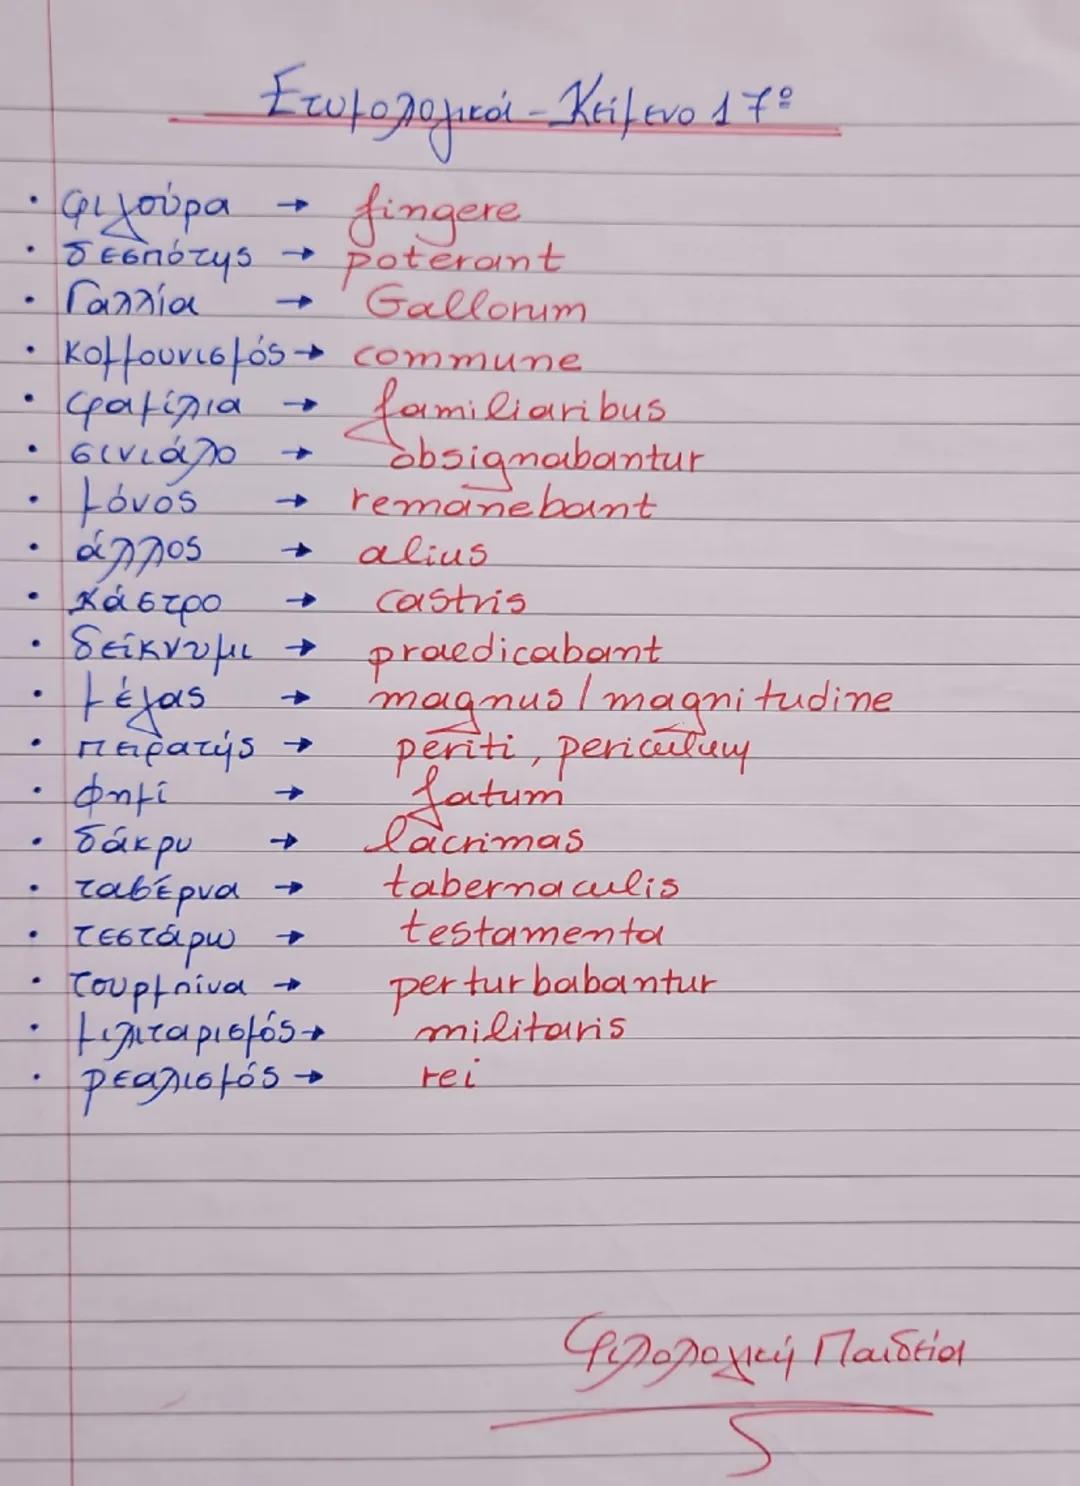 Ετυμολογικά - Κείμενο 17º
• φιγούρα → fingere
• δεσπότης → poterant
• Γαλλία → Gallorum
• κομμουνισμός → commune
• φαμίλια → familiaribus
• σινιάλο → obsignabantur
• μόνος → remanebant
• άλλος → alius
• κάστρο → castris
• δείκνυμι → praedicabant
• μέγας → magnus / magnitudine
• πειρατής → periti, periculum
• φημί → fatum
• δάκρυ → lacrimas
• ταβέρνα → tabernaculis
• τεστάρω → testamenta
• τουρμπίνα → perturbabantur
• μιλιταρισμός → militaris
• ρεαλισμός → rei
Φιλολογική Παιδεία